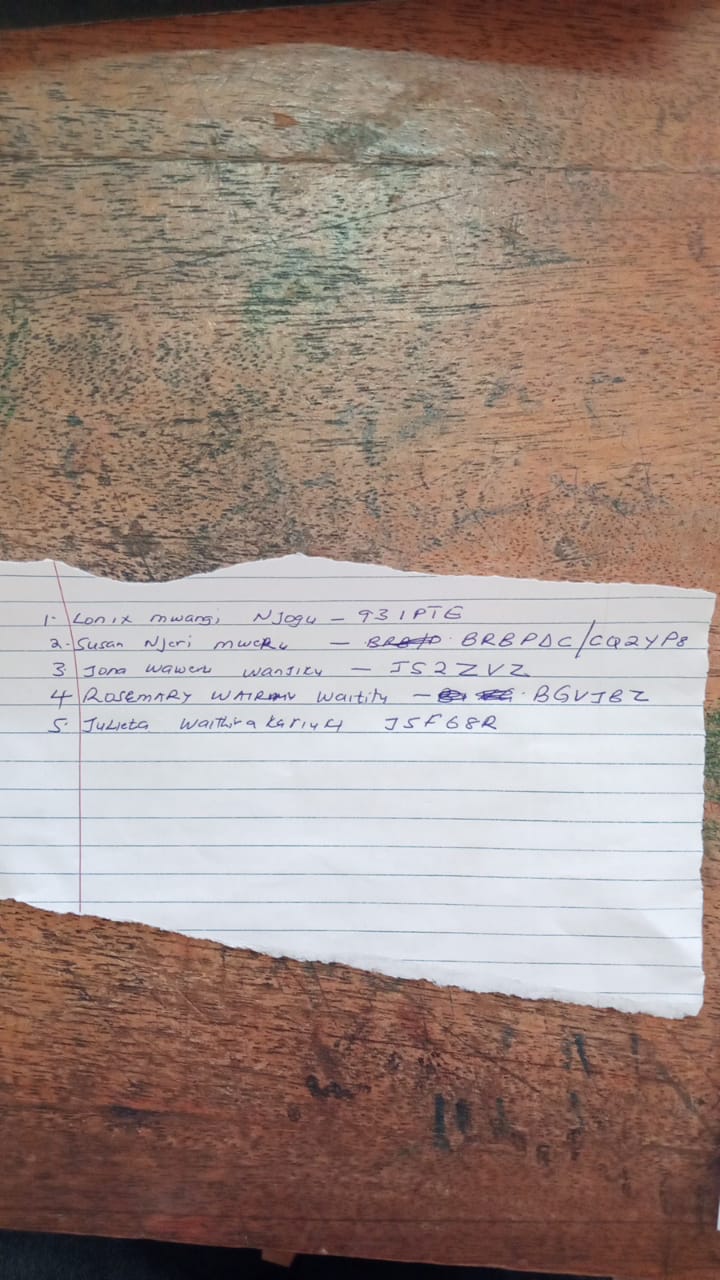 1. Lonix mwangi Njogu - 931PTE
2. Susan Njeri mweru - BRBPDC/CQ2YP8
3 Jona waweru wanjiku - JS2ZVZ
4 ROSEMARY waitity - BGVJBZ
5. Julieta Waithira kariuki J5F68R